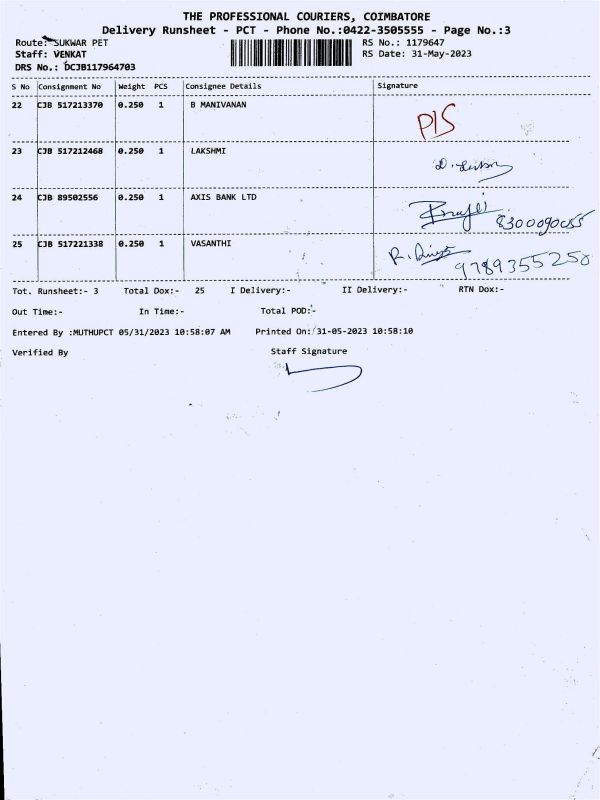 THE PROFESSIONAL COURIERS, COIMBATORE
Delivery Runsheet - PCT - Phone No.:0422-3505555 - Page No.:3
Route: SUKWAR PET RS No.: 1179647
Staff: VENKAT RS Date: 31-May-2023
DRS No.: DCJB117964703
S No Consignment No Weight PCS Consignee Details Signature
22 CJB 517213370 0.250 1 B MANIVANAN PIS
23 CJB 517212468 0.250 1 LAKSHMI D.
24 CJB 89502556 0.250 1 AXIS BANK LTD 8300090055
25 CJB 517221338 0.250 1 VASANTHI R. 9789355258
Tot. Runsheet:- 3 Total Dox:- 25 I Delivery:- II Delivery:- RTN Dox:-
Out Time:- In Time:- Total POD:-
Entered By :MUTHUPCT 05/31/2023 10:58:07 AM Printed On: 31-05-2023 10:58:10
Verified By Staff Signature